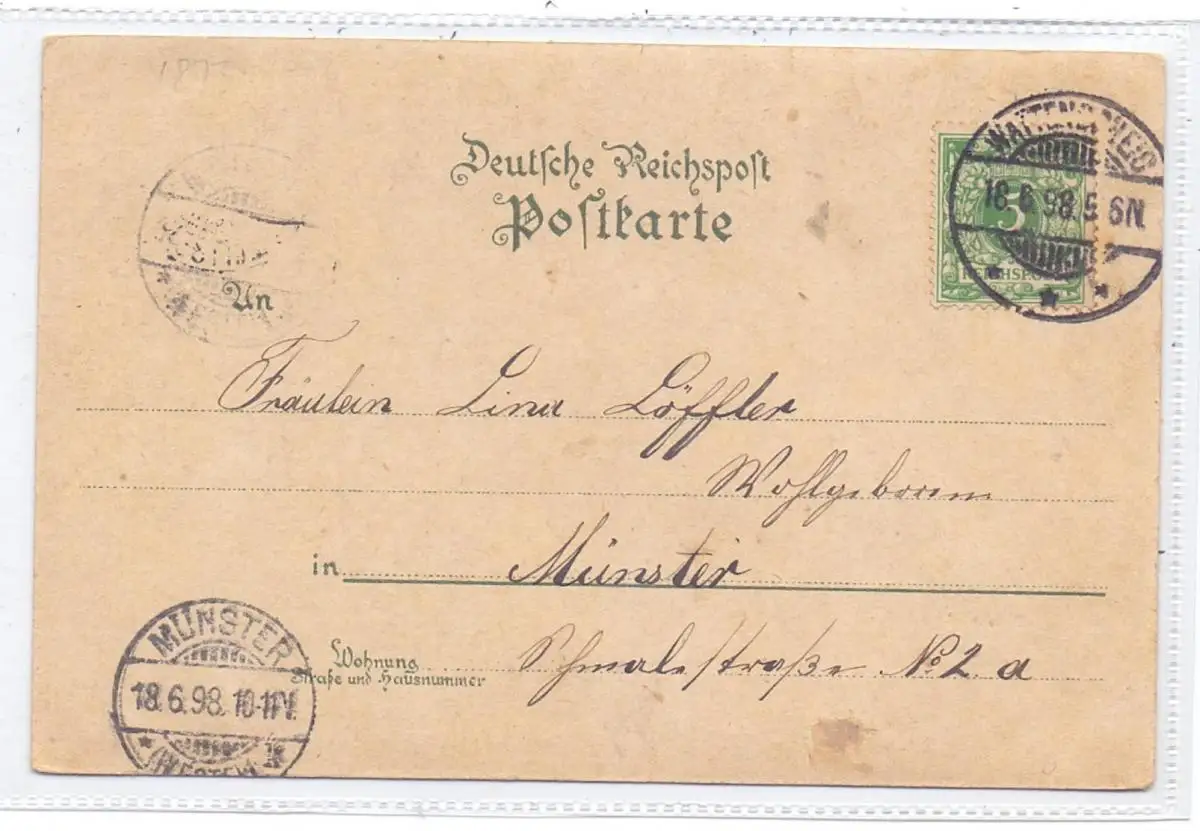 Deutsche Reichspost
Postkarte
WATTENSCHEID
18.6.98.5-6N.
5
REICHSPOST
An
Fräulein Lina Löffler
Wohlgeboren
in Münster
Wohnung
Straße und Hausnummer
Schmalestraße No 2 a
MÜNSTER
18.6.98.10-11N.
(WESTF.)